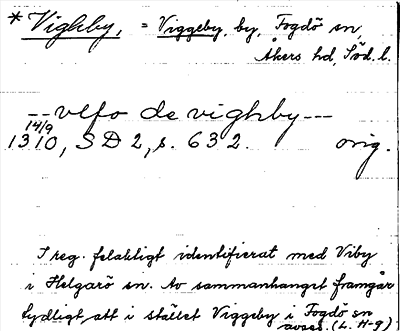 * Vighby, = Viggeby, by, Fogdö sn,
Åkers hd, Söd. l.
-- vlfo de vighby ---
14/9
1310, SD 2, s. 632. orig.
I reg. felaktigt identifierat med Viby
i Helgarö sn. Av sammanhanget framgår
tydligt, att i stället Viggeby i Fogdö sn
avses. (L. H-g)